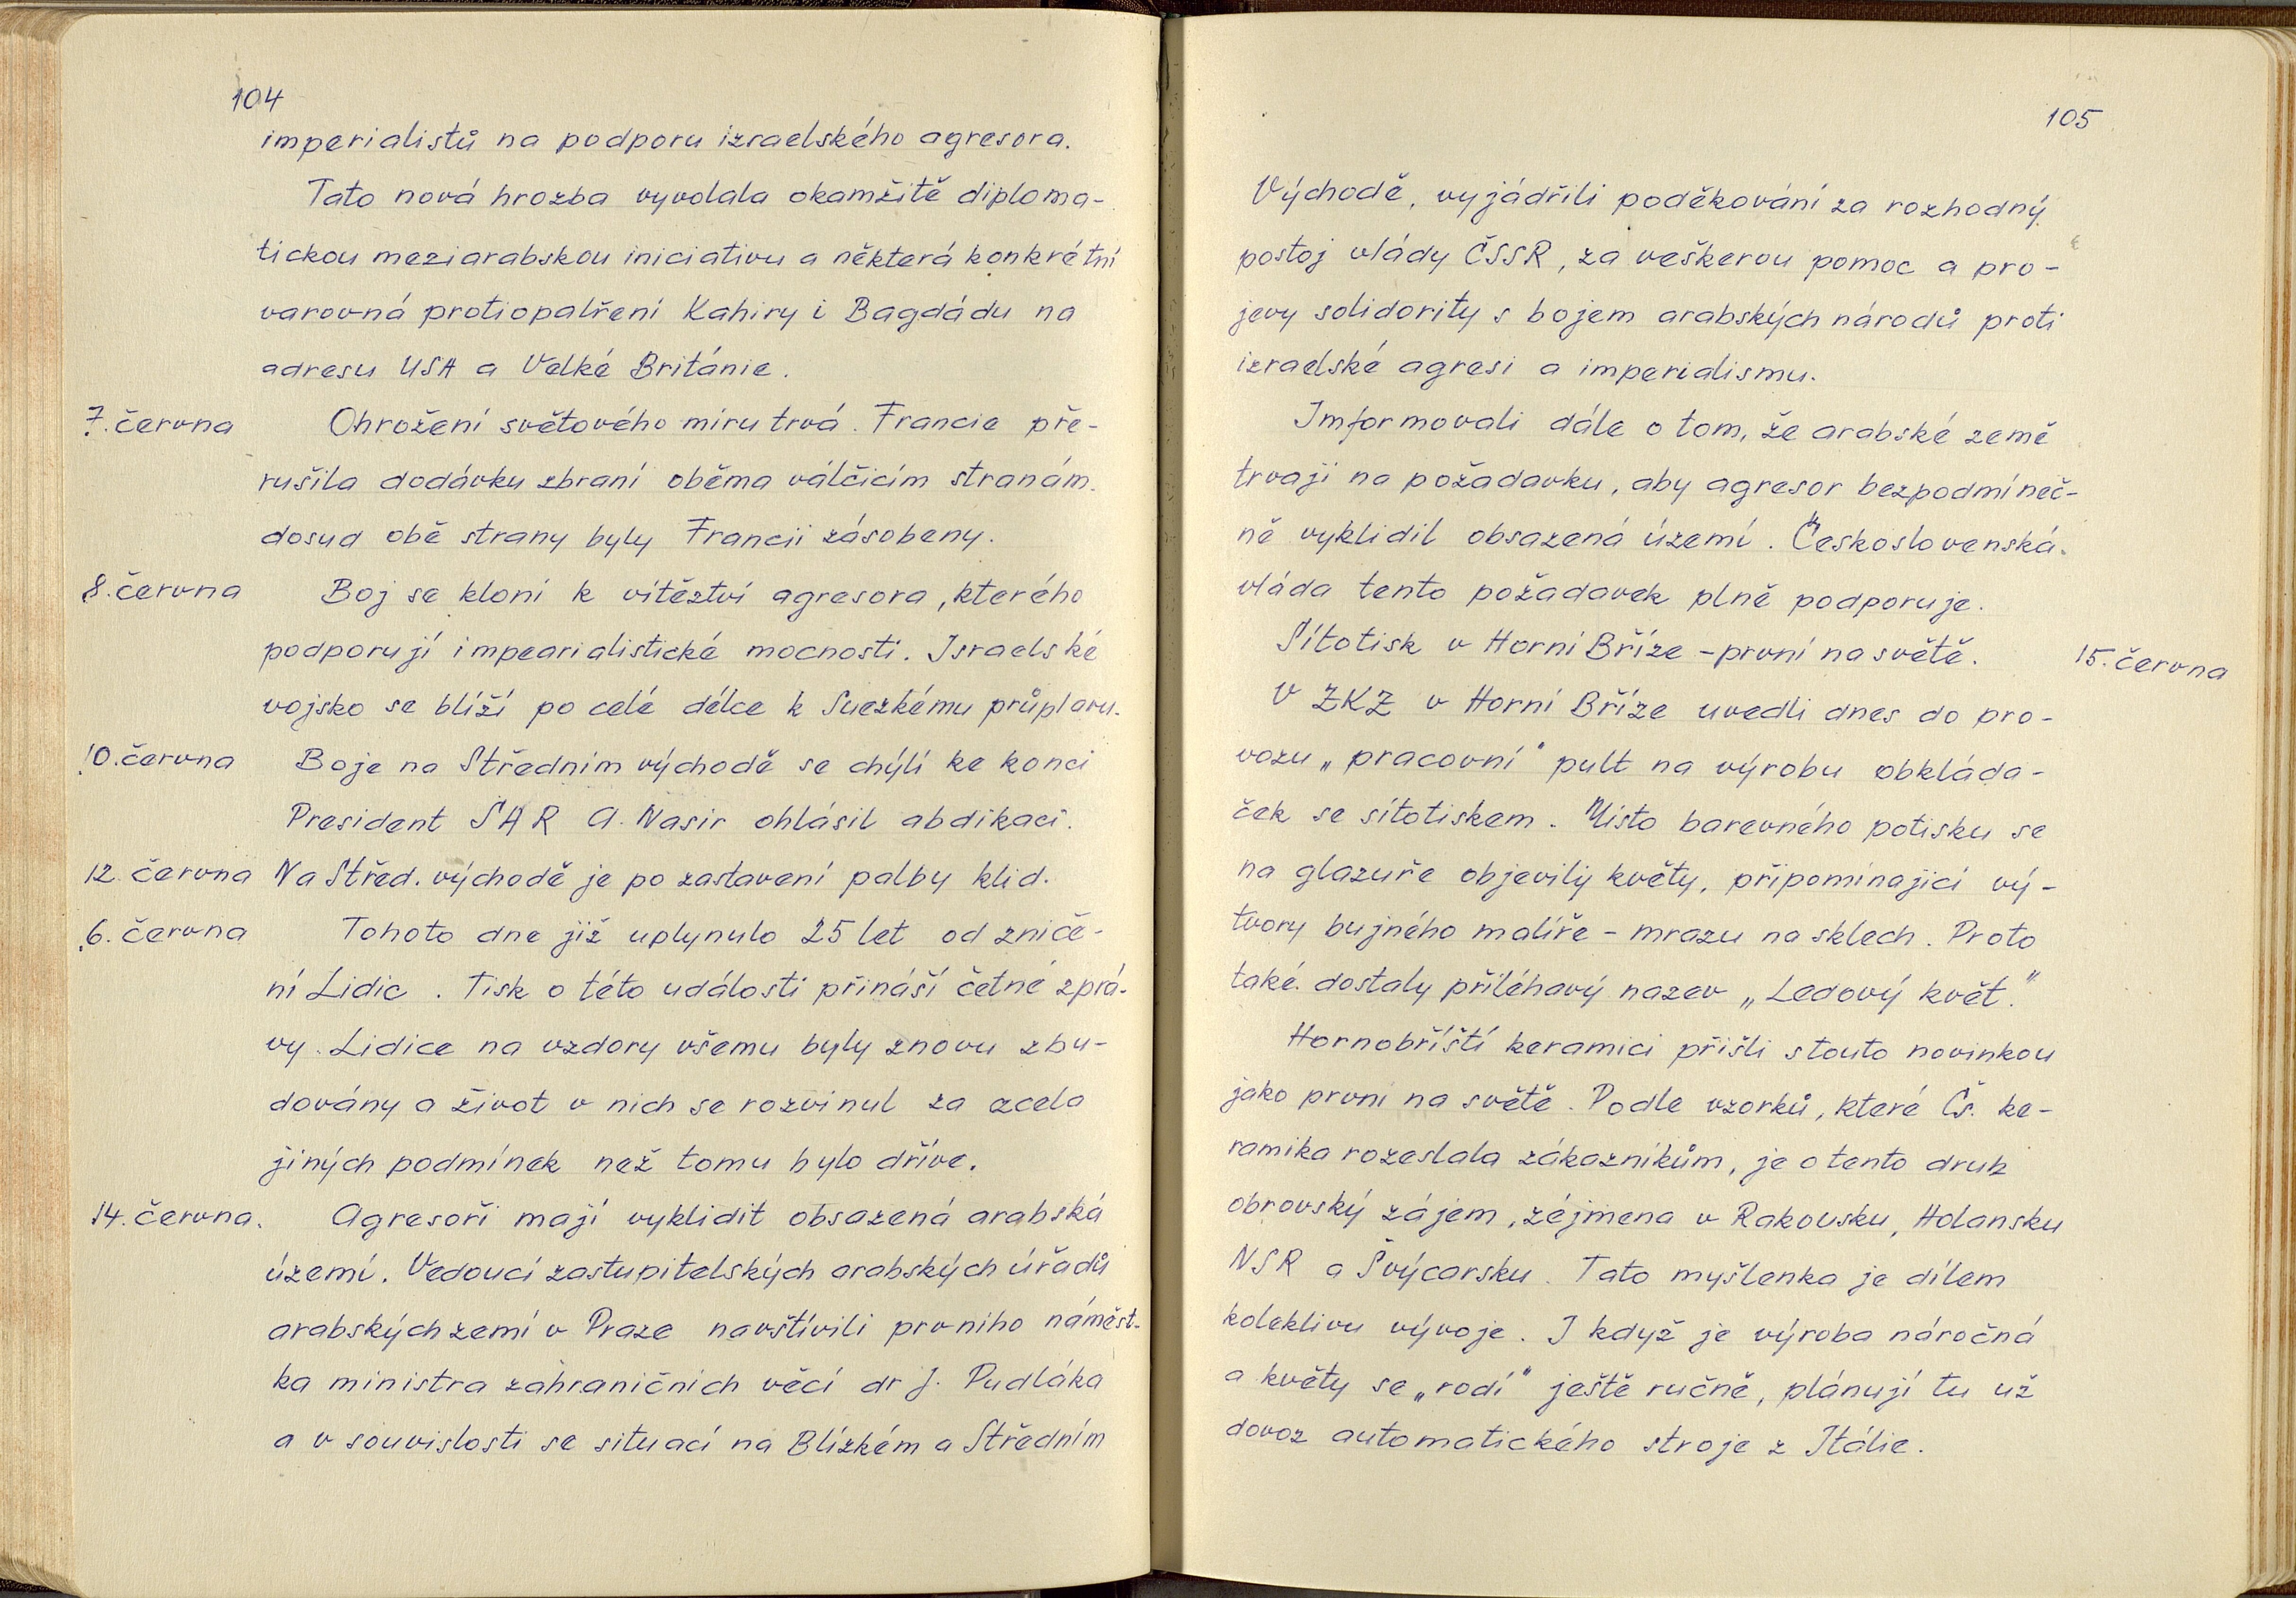 104
imperialistů na podporu izraelského agresora.
Tato nová hrozba vyvolala okamžitě diploma-
tickou meziarabskou iniciativu a některá konkrétní
varovná protiopatření Kahiry i Bagdádu na
adresu USA a Velké Británie.
7. června Ohrožení světového míru trvá. Francie pře-
rušila dodávku zbraní oběma válčícím stranám.
dosud obě strany byly Francii zásobeny.
8. června Boj se kloní k vítěztví agresora, kterého
podporují impearialistické mocnosti. Israelské
vojsko se blíží po celé délce k Suezkému průplavu.
10. června Boje na Středním východě se chýlí ke konci
President SAR A. Nasir ohlásil abdikaci.
12. června Na Střed. východě je po zastavení palby klid.
6. června Tohoto dne již uplynulo 25 let od zniče-
ní Lidic. Tisk o této události přináší četné zprá-
vy. Lidice na vzdory všemu byly znovu zbu-
dovány a život v nich se rozvinul za zcela
jiných podmínek než tomu bylo dříve.
14. června. Agresoři mají vyklidit obsazená arabská
území. Vedoucí zastupitelských arabských úřadů
arabských zemí v Praze navštívili prvního náměst-
ka ministra zahraničních věcí dr J. Pudláka
a v souvislosti se situací na Blízkém a Středním
105
Východě, vyjádřili poděkování za rozhodný
postoj vlády ČSSR, za veškerou pomoc a pro-
jevy solidority s bojem arabských národů proti
izraelské agresi a imperialismu.
Imformovali dále o tom, že arabské země
trvají na požadavku, aby agresor bezpodmíneč-
ně vyklidil obsazená území. Československá
vláda tento požadavek plně podporuje.
Sítotisk v Horní Bříze - první na světě. 15. června
V ZKZ v Horní Bříze uvedli dnes do pro-
vozu „pracovní" pult na výrobu obkláda-
ček se sítotiskem. Místo barevného potisku se
na glazuře objevily květy, připomínající vý-
tvory bujného malíře - mrazu na sklech. Proto
také dostaly přiléhavý nazev „Ledový květ."
Hornobříští keramici přišli s touto novinkou
jako první na světě. Podle vzorků, které Čs. ke-
ramika rozeslala zákazníkům, je o tento druh
obrovský zájem, zéjmena v Rakousku, Holansku
NSR a Švýcarsku. Tato myšlenka je dílem
kolektivu vývoje. I když je výroba náročná
a květy se „rodí" ještě ručně, plánují tu už
dovoz automatického stroje z Itálie.